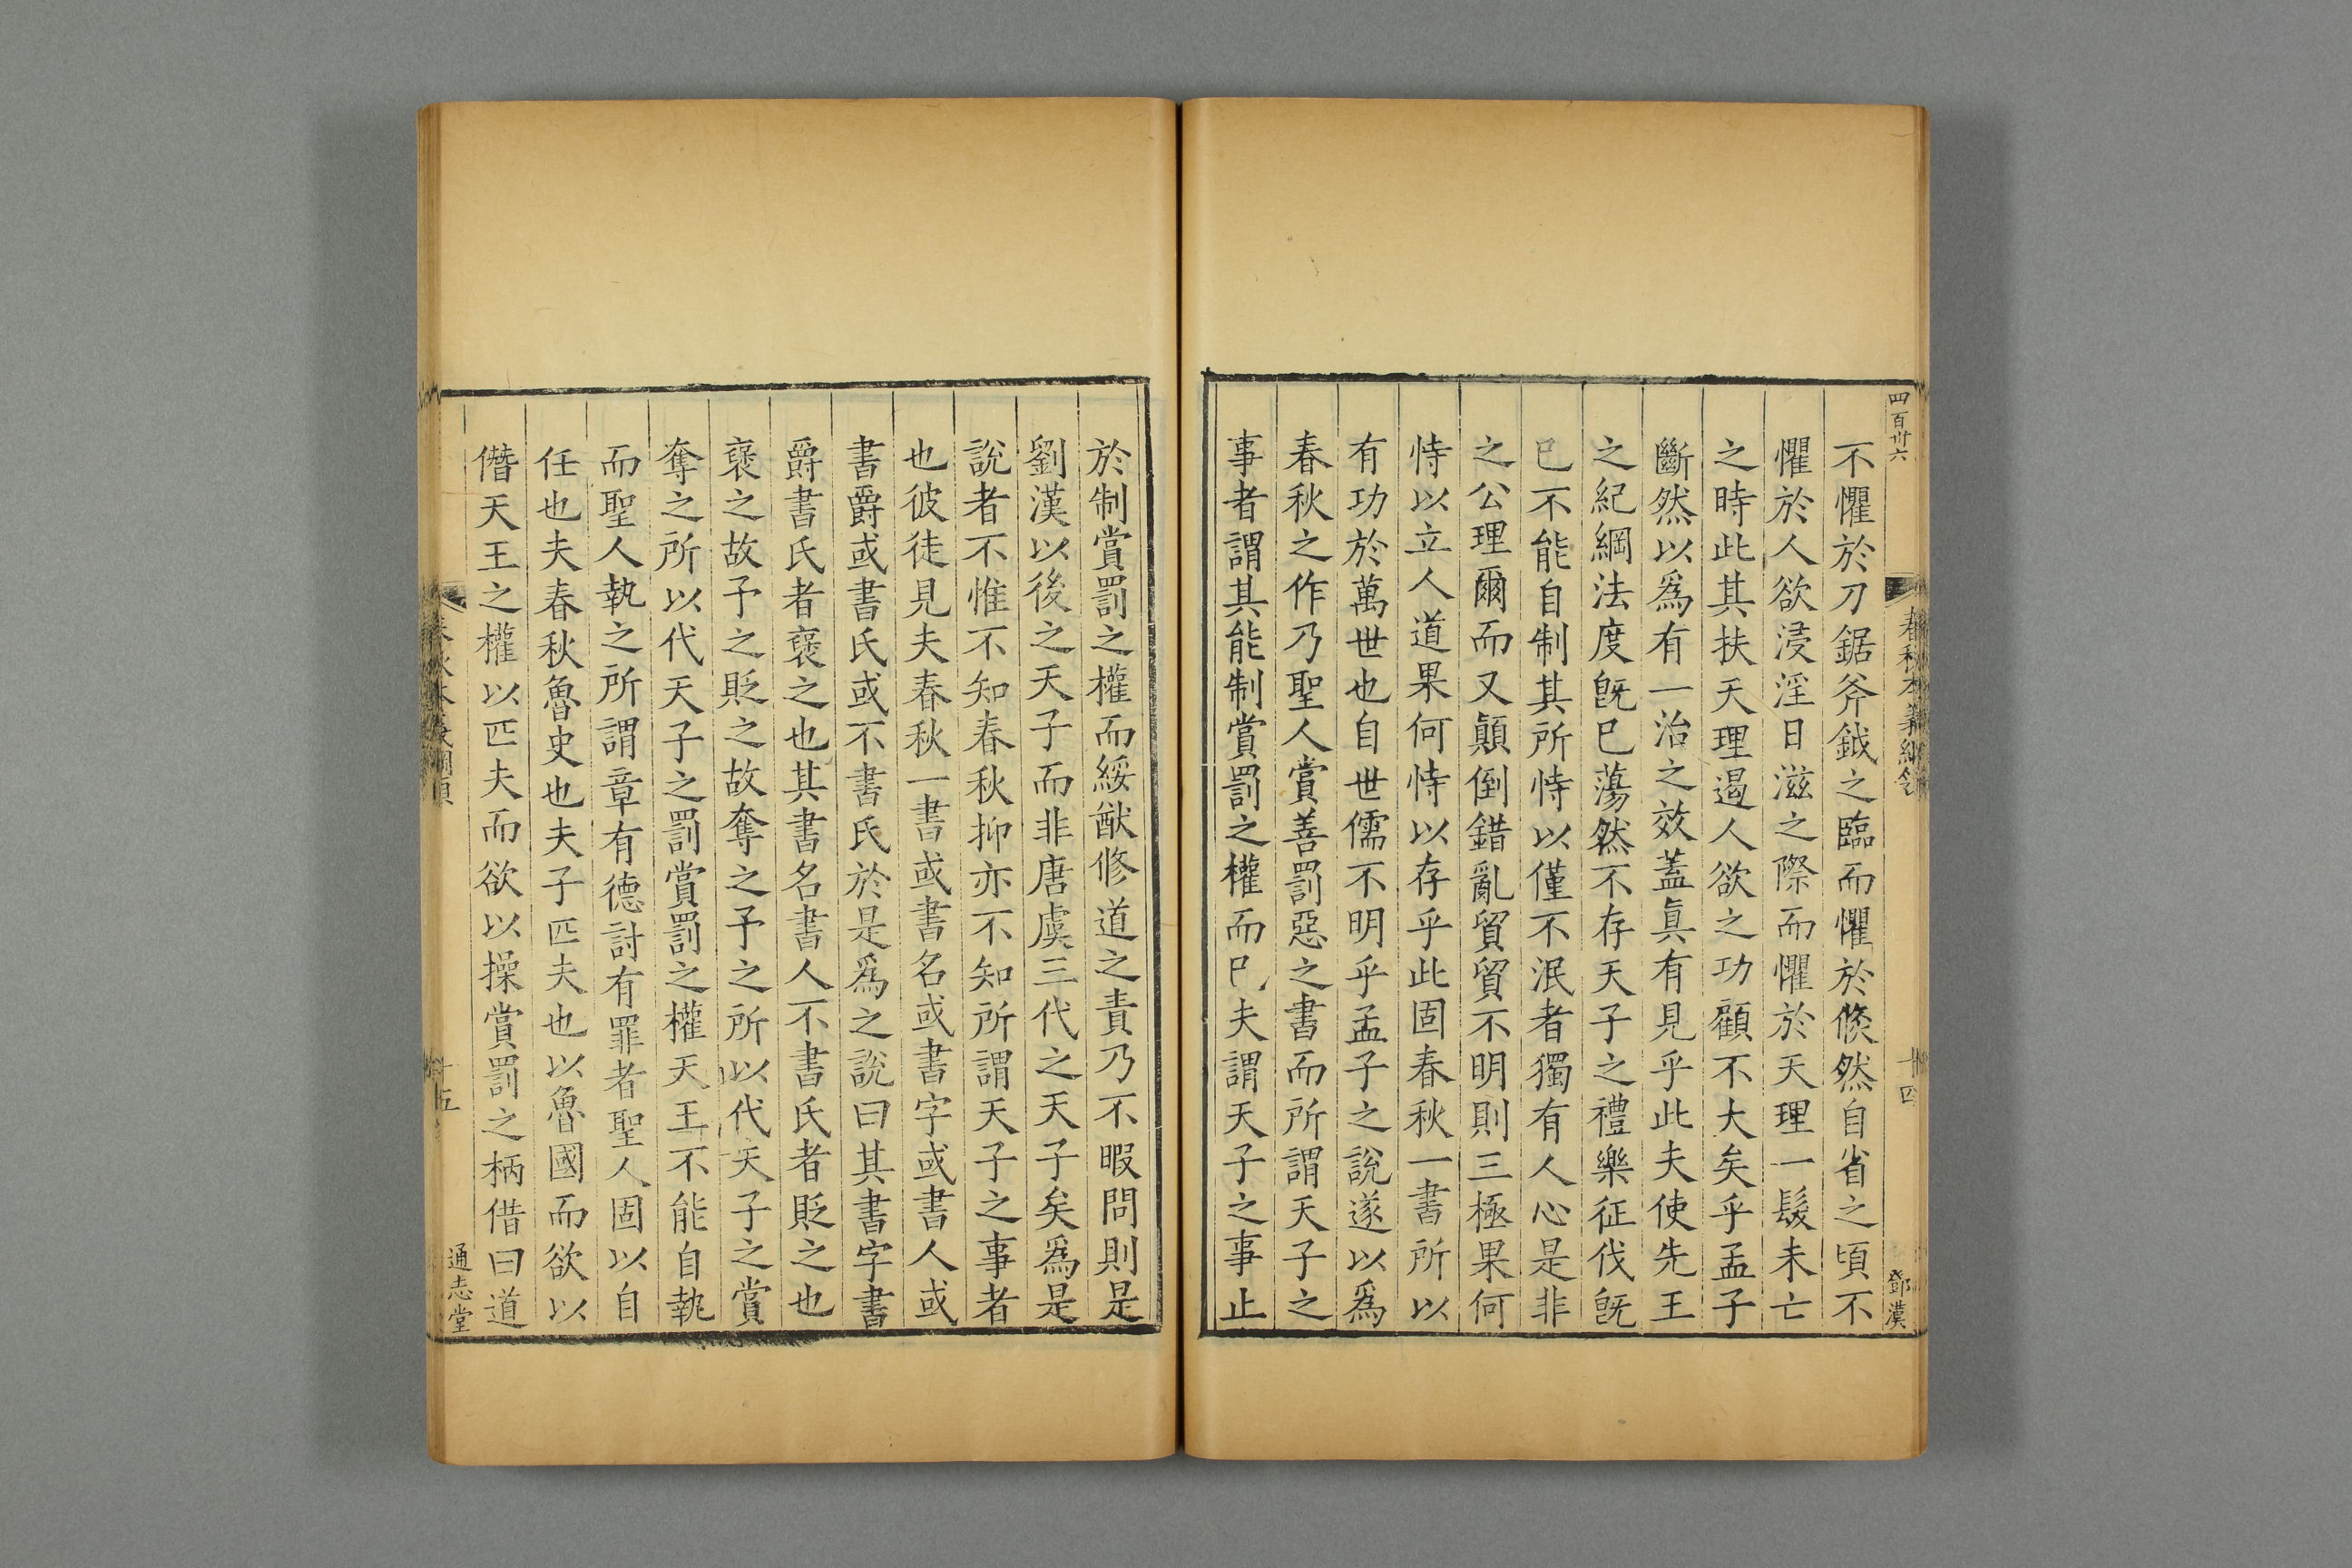 四百卅六
春秋本義綱領
十四
鄧漢
不懼於刀鋸斧鉞之臨而懼於倐然自省之頃不
懼於人欲浸淫日滋之際而懼於天理一髮未亡
之時此其扶天理遏人欲之功顧不大矣乎孟子
斷然以爲有一治之效蓋眞有見乎此夫使先王
之紀綱法度旣已蕩然不存天子之禮樂征伐旣
已不能自制其所恃以僅不泯者獨有人心是非
之公理爾而又顚倒錯亂貿貿不明則三極果何
恃以立人道果何恃以存乎此固春秋一書所以
有功於萬世也自世儒不明乎孟子之說遂以爲
春秋之作乃聖人賞善罰惡之書而所謂天子之
事者謂其能制賞罰之權而已夫謂天子之事止
於制賞罰之權而綏猷修道之責乃不暇問則是
劉漢以後之天子而非唐虞三代之天子矣爲是
說者不惟不知春秋抑亦不知所謂天子之事者
也彼徒見夫春秋一書或書名或書字或書人或
書爵或書氏或不書氏於是爲之說曰其書字書
爵書氏者褒之也其書名書人不書氏者貶之也
褒之故予之貶之故奪之予之所以代天子之賞
奪之所以代天子之罰賞罰之權天王不能自執
而聖人執之所謂章有德討有罪者聖人固以自
任也夫春秋魯史也夫子匹夫也以魯國而欲以
僭天王之權以匹夫而欲以操賞罰之柄借曰道
春秋本義綱領
十五
通志堂